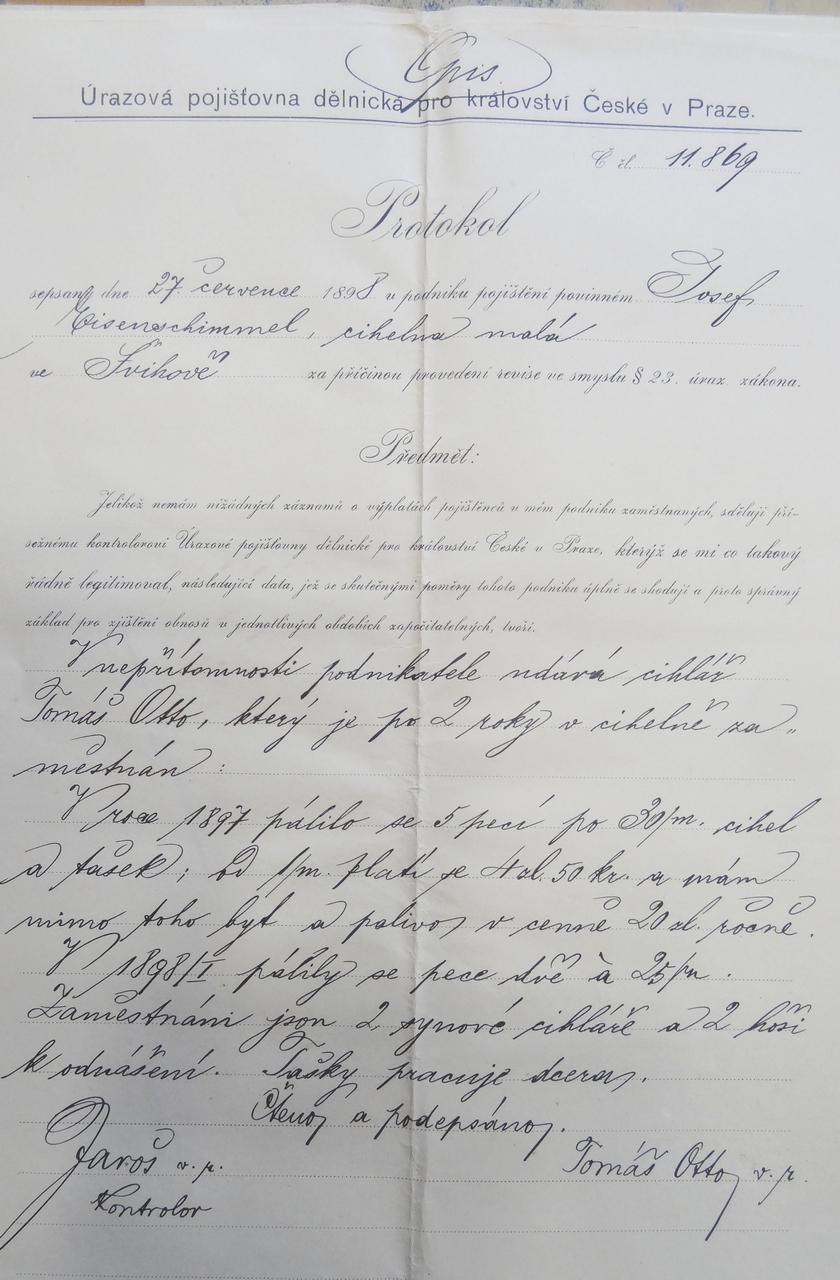 Opis.
Úrazová pojišťovna dělnická pro království České v Praze.
Č čl. 11.869
Protokol
sepsaný dne 27. července 1898 u podniku pojištění povinném Josef
Eisenschimmel, cihelna malá
ve Švihově za příčinou provedení revise ve smyslu § 23. úraz. zákona.
Předmět:
Jelikož nemám nižádných záznamů o výplatách pojištěnců v mém podniku zaměstnaných, sděluji pří-
sežnému kontrolorovi Úrazové pojišťovny dělnické pro království České v Praze, kterýž se mi co takový
řádně legitimoval, následující data, jež se skutečnými poměry tohoto podniku úplně se shodují a proto správný
základ pro zjištění obnosů v jednotlivých obdobích započitatelných, tvoří.
V nepřítomnosti podnikatele udává cihlář
Tomáš Otto, který je po 2 roky v cihelně za„
městnán :
V roce 1897 pálilo se 5 pecí po 30/m. cihel
a tašek; od 1/m. platí se 4 zl. 50 kr. a mám
mimo toho byt a palivo v cenně 20 zl. ročně.
V 1898/I pálily se pece dvě à 25/m.
Zaměstnáni json 2 synové cihláře a 2 hoši
k odnášení. Tašky pracuje dcera.
Čteno a podepsáno.
Jaroš v. r. Tomáš Otto v. r.
Kontrolor